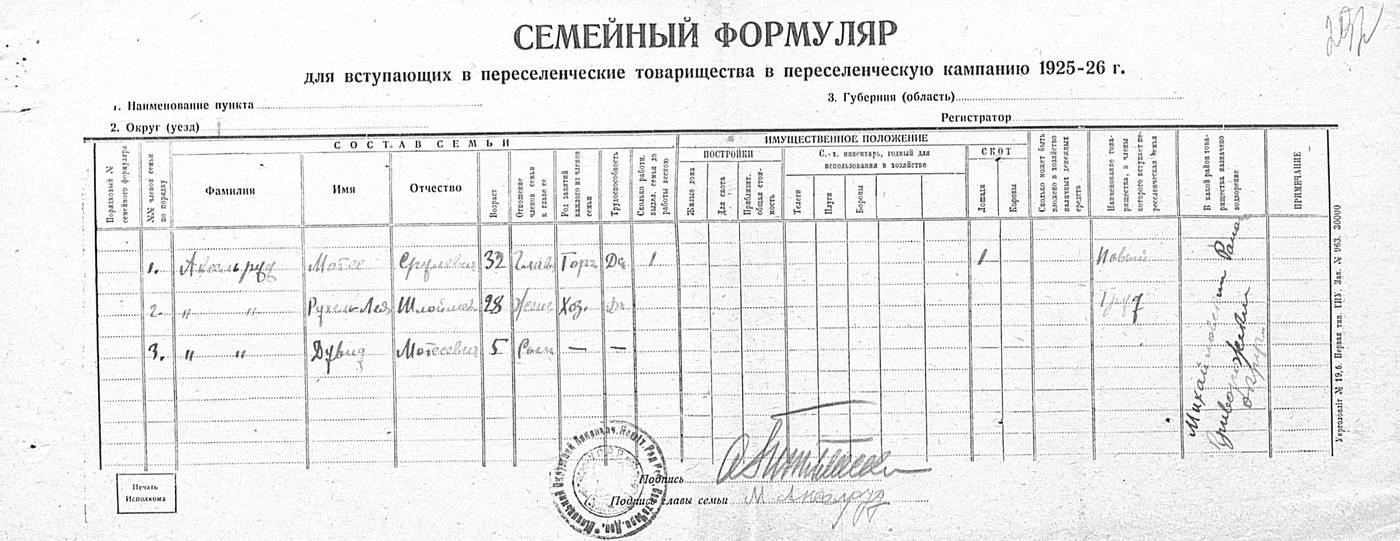 СЕМЕЙНЫЙ ФОРМУЛЯР
для вступающих в переселенческие товарищества в переселенческую кампанию 1925-26 г.
1. Наименование пункта
3. Губерния (область)
2. Округ (уезд)
Регистратор
СОСТАВ СЕМЬИ
ИМУЩЕСТВЕННОЕ ПОЛОЖЕНИЕ
ПОСТРОЙКИ
С.-х. инвентарь, годный для использования в хозяйстве
СКОТ
Порядковый № семейного формуляра
№№ членов семьи по порядку
Фамилия
Имя
Отчество
Возраст
Отношение членов семьи к главе ее
Род занятий каждого из членов семьи
Трудоспособность
Сколько работн. выдел. семья до работы весною
Жилые дома
Для скота
Приблизит. общая стоимость
Телеги
Плуги
Бороны
Лошади
Коровы
Сколько может быть вложено в хозяйство наличных денежных средств
Наименование товарищества, в члены которого вступает переселенческая семья
В какой район товарищества назначено подворение
ПРИМЕЧАНИЕ
1. Аксельруд Мотее Срулевич 32 Глав Торг Да 1 1 Новый
2. " " Рухель-Лея Шлоймов 28 Жена Хоз. Да Труд
3. " " Дувид Мотеевич 5 Сын — —
Криворожский
округ
Печать
Исполкома
Подпись
Подпись главы семьи М Аксельруд
Укрполиг № 19,6. Первая тип. ГПУ. Зак. № 963. 30000